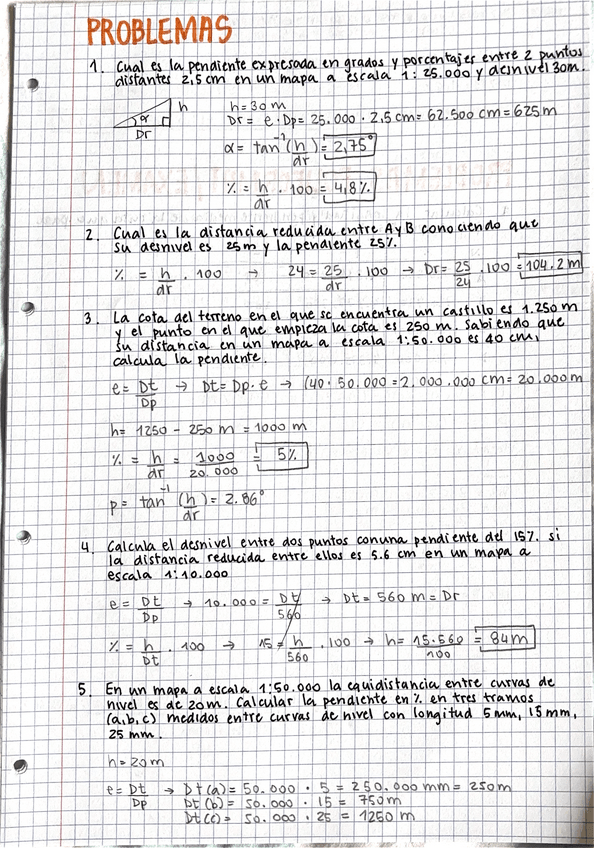 PROBLEMAS
1. Cual es la pendiente expresada en grados y porcentajes entre 2 puntos
distantes 2,5 cm en un mapa a escala 1:25.000 y desnivel 30m.
h
α
Dr
h = 30 m
Dr = e · Dp = 25.000 · 2,5 cm = 62.500 cm = 625 m
α = tan⁻¹ (h/dr) = 2,75°
% = h/dr · 100 = 4,8%
2. Cual es la distancia reducida entre A y B conociendo que
su desnivel es 25m y la pendiente 25%.
% = h/dr · 100 → 24 = 25/dr · 100 → Dr = 25/24 · 100 = 104.2 m
3. La cota del terreno en el que se encuentra un castillo es 1.250 m
y el punto en el que empieza la cota es 250 m. Sabiendo que
su distancia en un mapa a escala 1:50.000 es 40 cm,
calcula la pendiente.
e = Dt/Dp → Dt = Dp · e → (40 · 50.000 = 2.000.000 cm = 20.000 m
h = 1250 - 250 m = 1000 m
% = h/dr = 1000/20.000 = 5%
p = tan⁻¹ (h/dr) = 2.86°
4. Calcula el desnivel entre dos puntos con una pendiente del 15% si
la distancia reducida entre ellos es 5.6 cm en un mapa a
escala 1:10.000
e = Dt/Dp → 10.000 = Dt/560 → Dt = 560 m = Dr
% = h/Dt · 100 → 15 = h/560 · 100 → h = 15·560/100 = 84 m
5. En un mapa a escala 1:50.000 la equidistancia entre curvas de
nivel es de 20m. Calcular la pendiente en % en tres tramos
(a,b,c) medidos entre curvas de nivel con longitud 5mm, 15mm,
25 mm.
h = 20 m
e = Dt/Dp → Dt(a) = 50.000 · 5 = 250.000 mm = 250m
Dt(b) = 50.000 · 15 = 750 m
Dt(c) = 50.000 · 25 = 1250 m